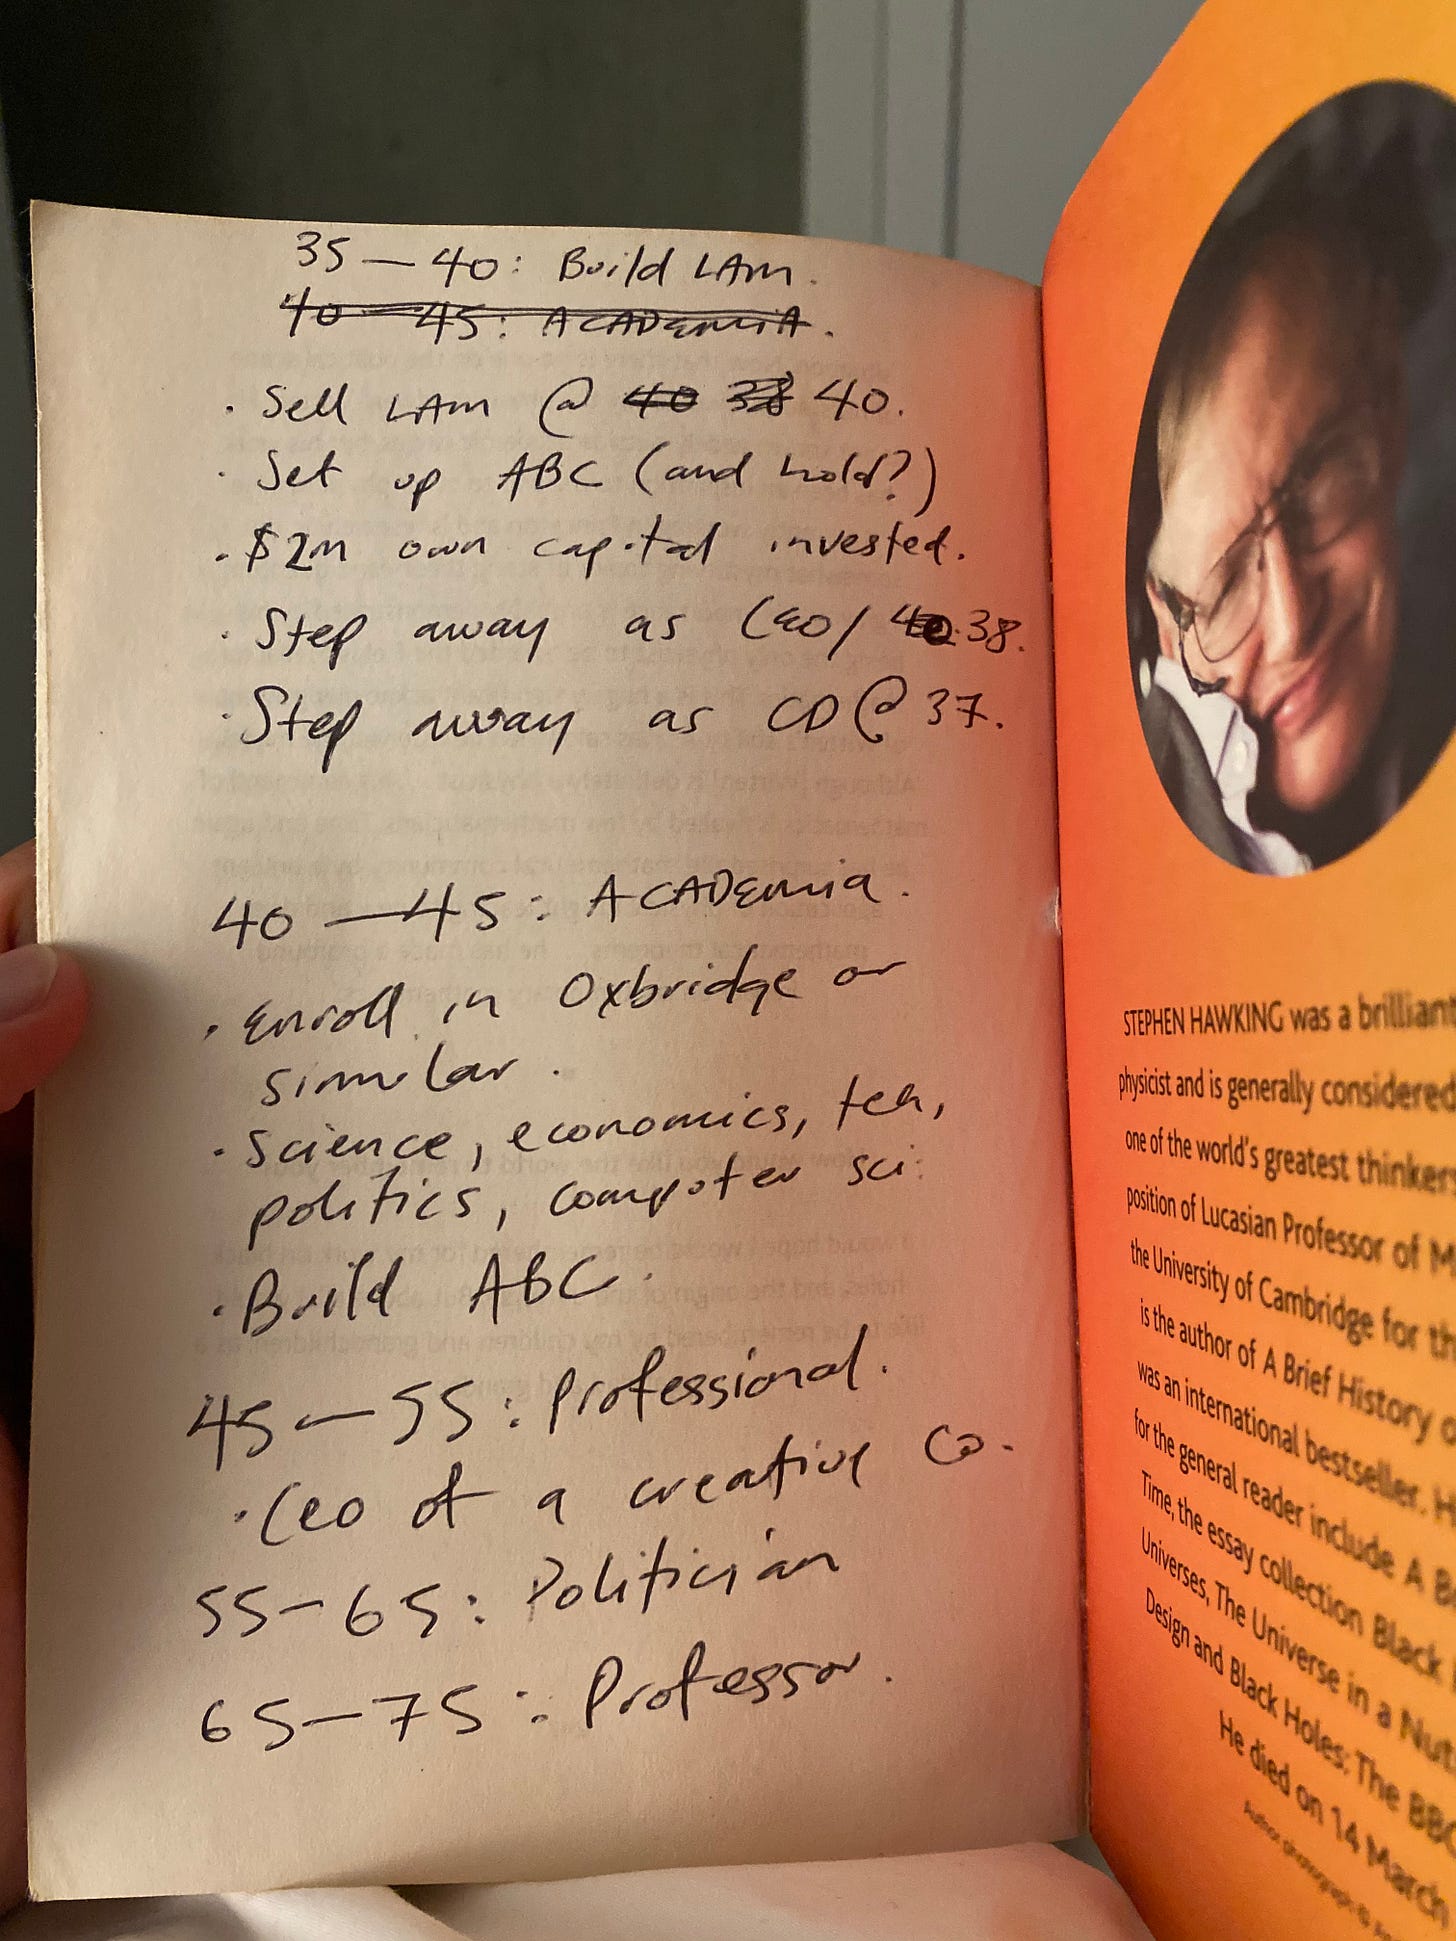 35 — 40: Build LAM.
40 — 45: ACADEMIA.
· Sell LAM @ 40 38 40.
· Set up ABC (and hold?)
· $2m own capital invested.
· Step away as CEO/ 40 38.
· Step away as CD @ 37.
40 — 45: ACADEMIA.
· Enroll in Oxbridge or
similar.
· Science, economics, tech,
politics, computer sci.
· Build ABC.
45 — 55: Professional.
· CEO of a creative Co.
55 — 65: Politician
65 — 75: Professor.
STEPHEN HAWKING was a brilliant
physicist and is generally considered
one of the world's greatest thinkers
position of Lucasian Professor of M
the University of Cambridge for th
is the author of A Brief History o
was an international bestseller. H
for the general reader include A B
Time, the essay collection Black
Universes, The Universe in a Nut
Design and Black Holes: The BBC
He died on 14 March
Author photograph ©